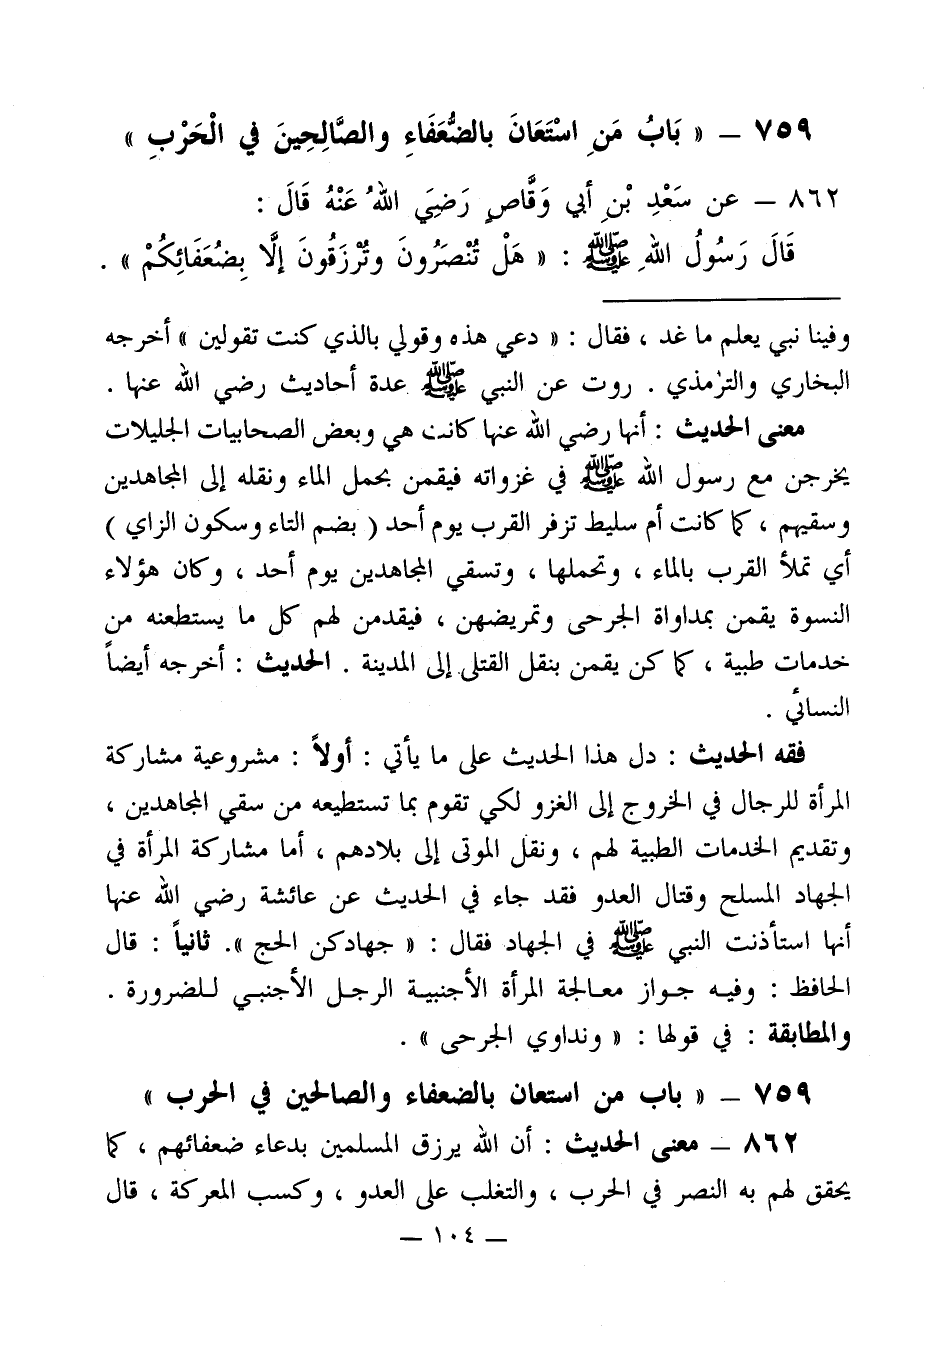 ٧٥٩ – « بَابُ مَنِ اسْتَعَانَ بالضُّعَفَاءِ والصَّالِحِينَ في الْحَرْبِ »
٨٦٢ – عن سَعْدِ بْنِ أبي وَقَّاصٍ رَضِيَ اللهُ عَنْهُ قَالَ :
قَالَ رَسُولُ اللهِ ﷺ : « هَلْ تُنْصَرُونَ وتُرْزَقُونَ إلَّا بِضُعَفَائِكُمْ » .
وفينا نبي يعلم ما غد ، فقال : « دعي هذه وقولي بالذي كنت تقولين » أخرجه
البخاري والترمذي . روت عن النبي ﷺ عدة أحاديث رضي الله عنها .
معنى الحديث : أنها رضي الله عنها كانت هي وبعض الصحابيات الجليلات
يخرجن مع رسول الله ﷺ في غزواته فيقمن بحمل الماء ونقله إلى المجاهدين
وسقيهم ، كما كانت أم سليط تزفر القرب يوم أحد ( بضم التاء وسكون الزاي )
أي تملأ القرب بالماء ، وتحملها ، وتسقي المجاهدين يوم أحد ، وكان هؤلاء
النسوة يقمن بمداواة الجرحى وتمريضهن ، فيقدمن لهم كل ما يستطعنه من
خدمات طبية ، كما كن يقمن بنقل القتلى إلى المدينة . الحديث : أخرجه أيضاً
النسائي .
فقه الحديث : دل هذا الحديث على ما يأتي : أولاً : مشروعية مشاركة
المرأة للرجال في الخروج إلى الغزو لكي تقوم بما تستطيعه من سقي المجاهدين ،
وتقديم الخدمات الطبية لهم ، ونقل الموتى إلى بلادهم ، أما مشاركة المرأة في
الجهاد المسلح وقتال العدو فقد جاء في الحديث عن عائشة رضي الله عنها
أنها استأذنت النبي ﷺ في الجهاد فقال : « جهادكن الحج ». ثانياً : قال
الحافظ : وفيه جواز معالجة المرأة الأجنبية الرجل الأجنبي للضرورة .
والمطابقة : في قولها : « ونداوي الجرحى » .
٧٥٩ – « باب من استعان بالضعفاء والصالحين في الحرب »
٨٦٢ – معنى الحديث : أن الله يرزق المسلمين بدعاء ضعفائهم ، كما
يحقق لهم به النصر في الحرب ، والتغلب على العدو ، وكسب المعركة ، قال
– ١٠٤ –